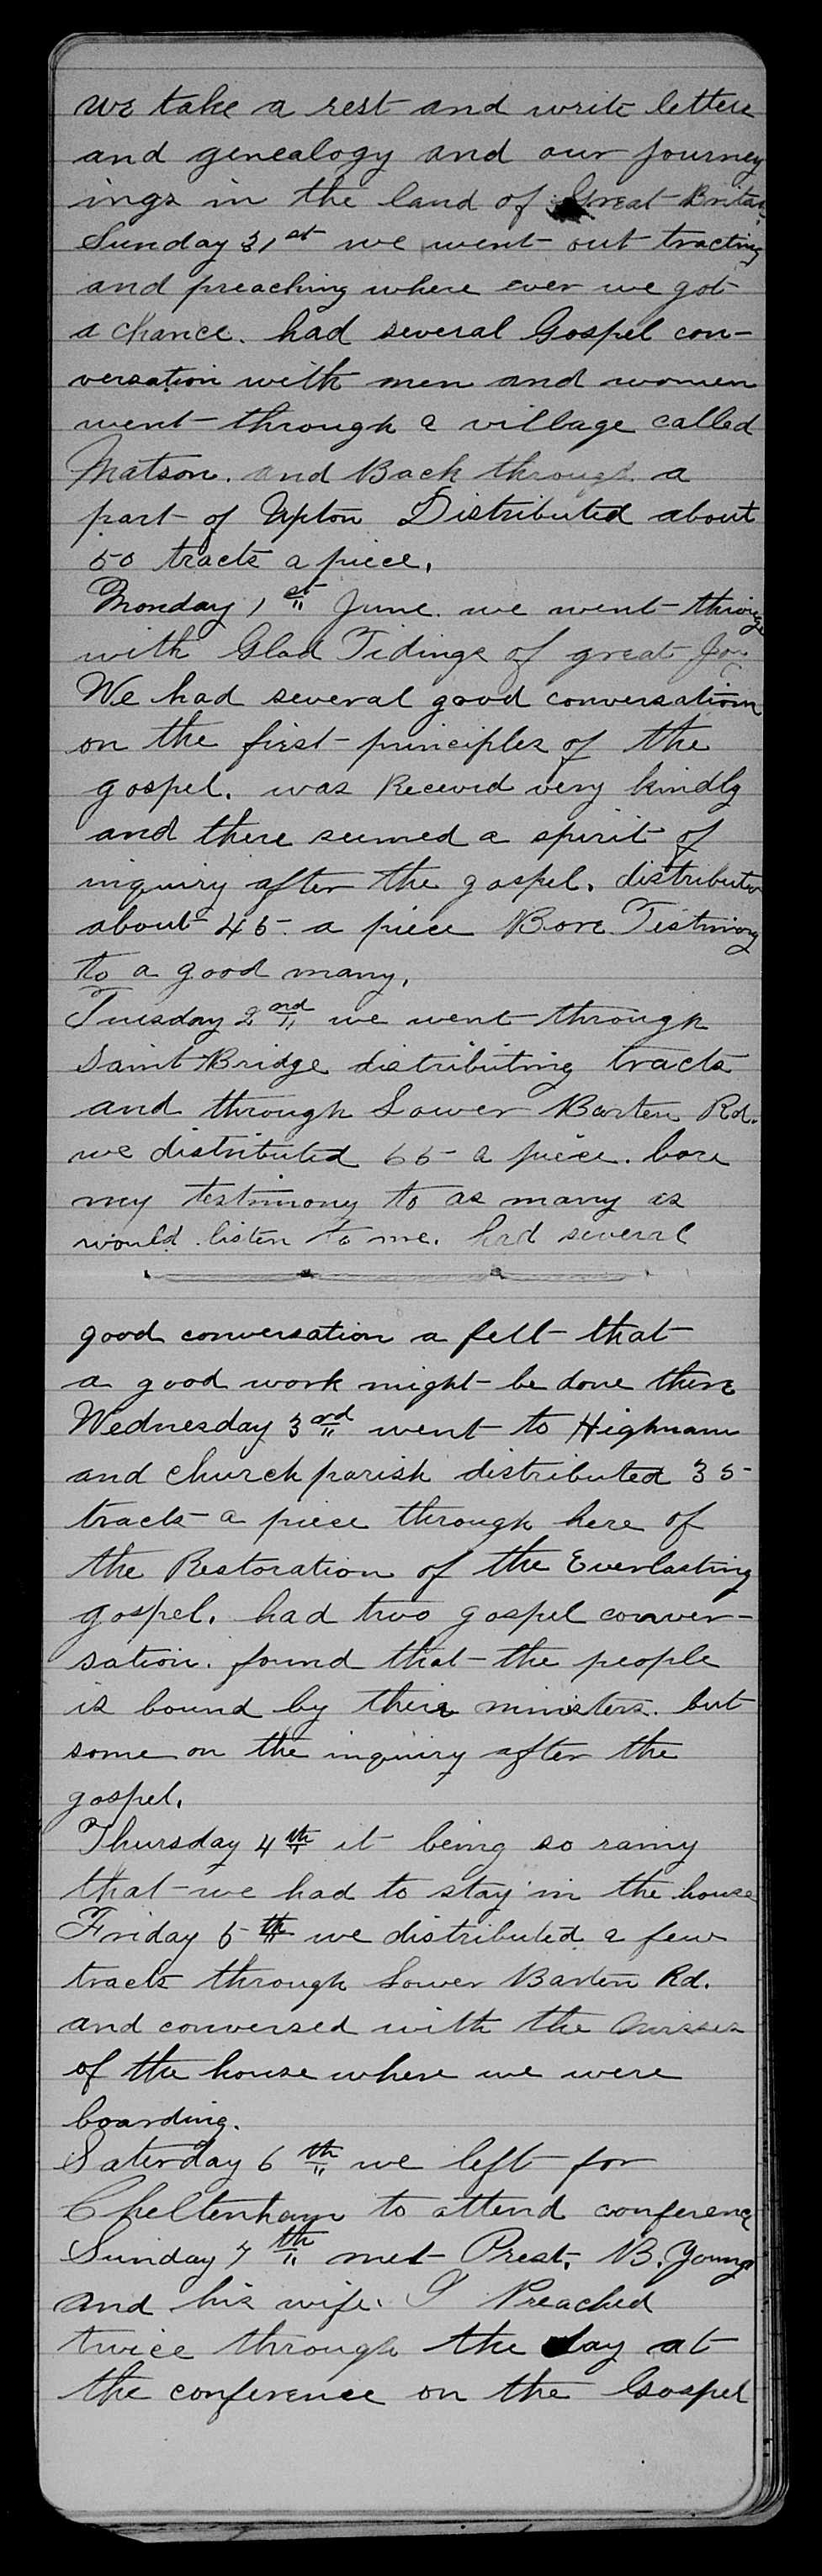 we take a rest and write letters
and genealogy and our journey
ings in the land of Great Britain
Sunday 31st we went out tracting
and preaching where ever we got
a chance. had several Gospel con-
versation with men and women
went through a village called
Matson. and Back through a
part of Upton Distributed about
50 tracts a piece.
Monday 1st June. we went through
with Glad Tidings of great Joy
We had several good conversation
on the first principles of the
gospel. was Received very kindly
and there seemed a spirit of
inquiry after the gospel. distributed
about 45 a piece Bore Testimony
to a good many.
Tuesday 2nd we went through
Saint Bridge distributing tracts
and through Lower Barten Rd.
we distributed 65 a piece. bore
my testimony to as many as
would listen to me. had several
good conversation a felt that
a good work might be done there
Wednesday 3rd went to Highnam
and church parish distributed 35
tracts a piece through here of
the Restoration of the Everlasting
gospel. had two gospel conver-
sation. found that the people
is bound by their ministers. but
some on the inquiry after the
gospel.
Thursday 4th it being so rainy
that we had to stay in the house
Friday 5th we distributed a few
tracts through Lower Barten Rd.
and conversed with the
of the house where we were
boarding.
Saterday 6th we left for
Cheltenham to attend conference
Sunday 7th met Prest. B. Young
and his wife. I Preached
twice through the day at
the conference on the Gospel